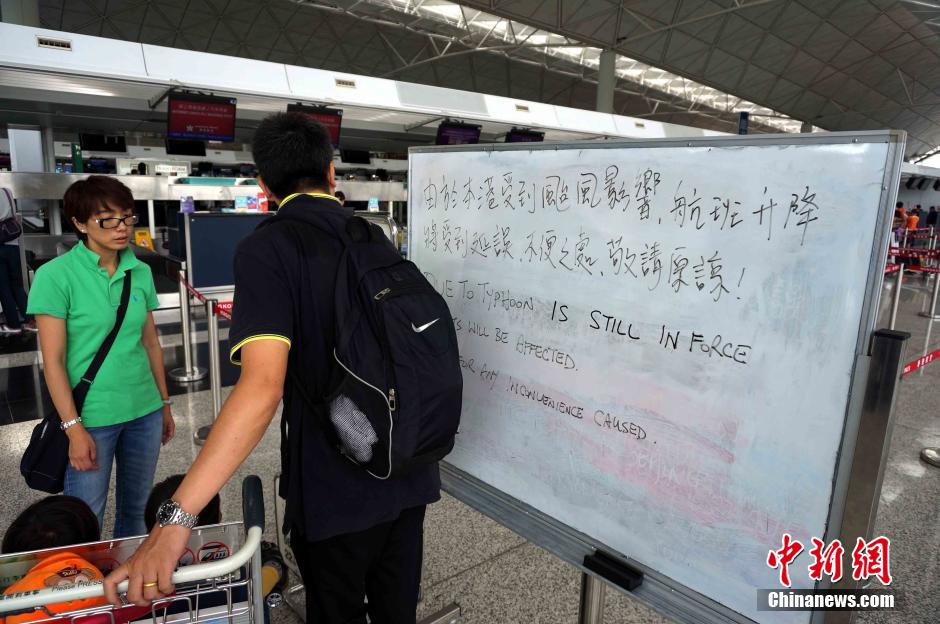 由於本港受到颱風影響,航班升降
將受到延誤,不便之處,敬請原諒!
DUE TO TYPHOON IS STILL IN FORCE
WILL BE AFFECTED.
FOR ANY INCONVENIENCE CAUSED.
Please PRESS
中新网
Chinanews.com